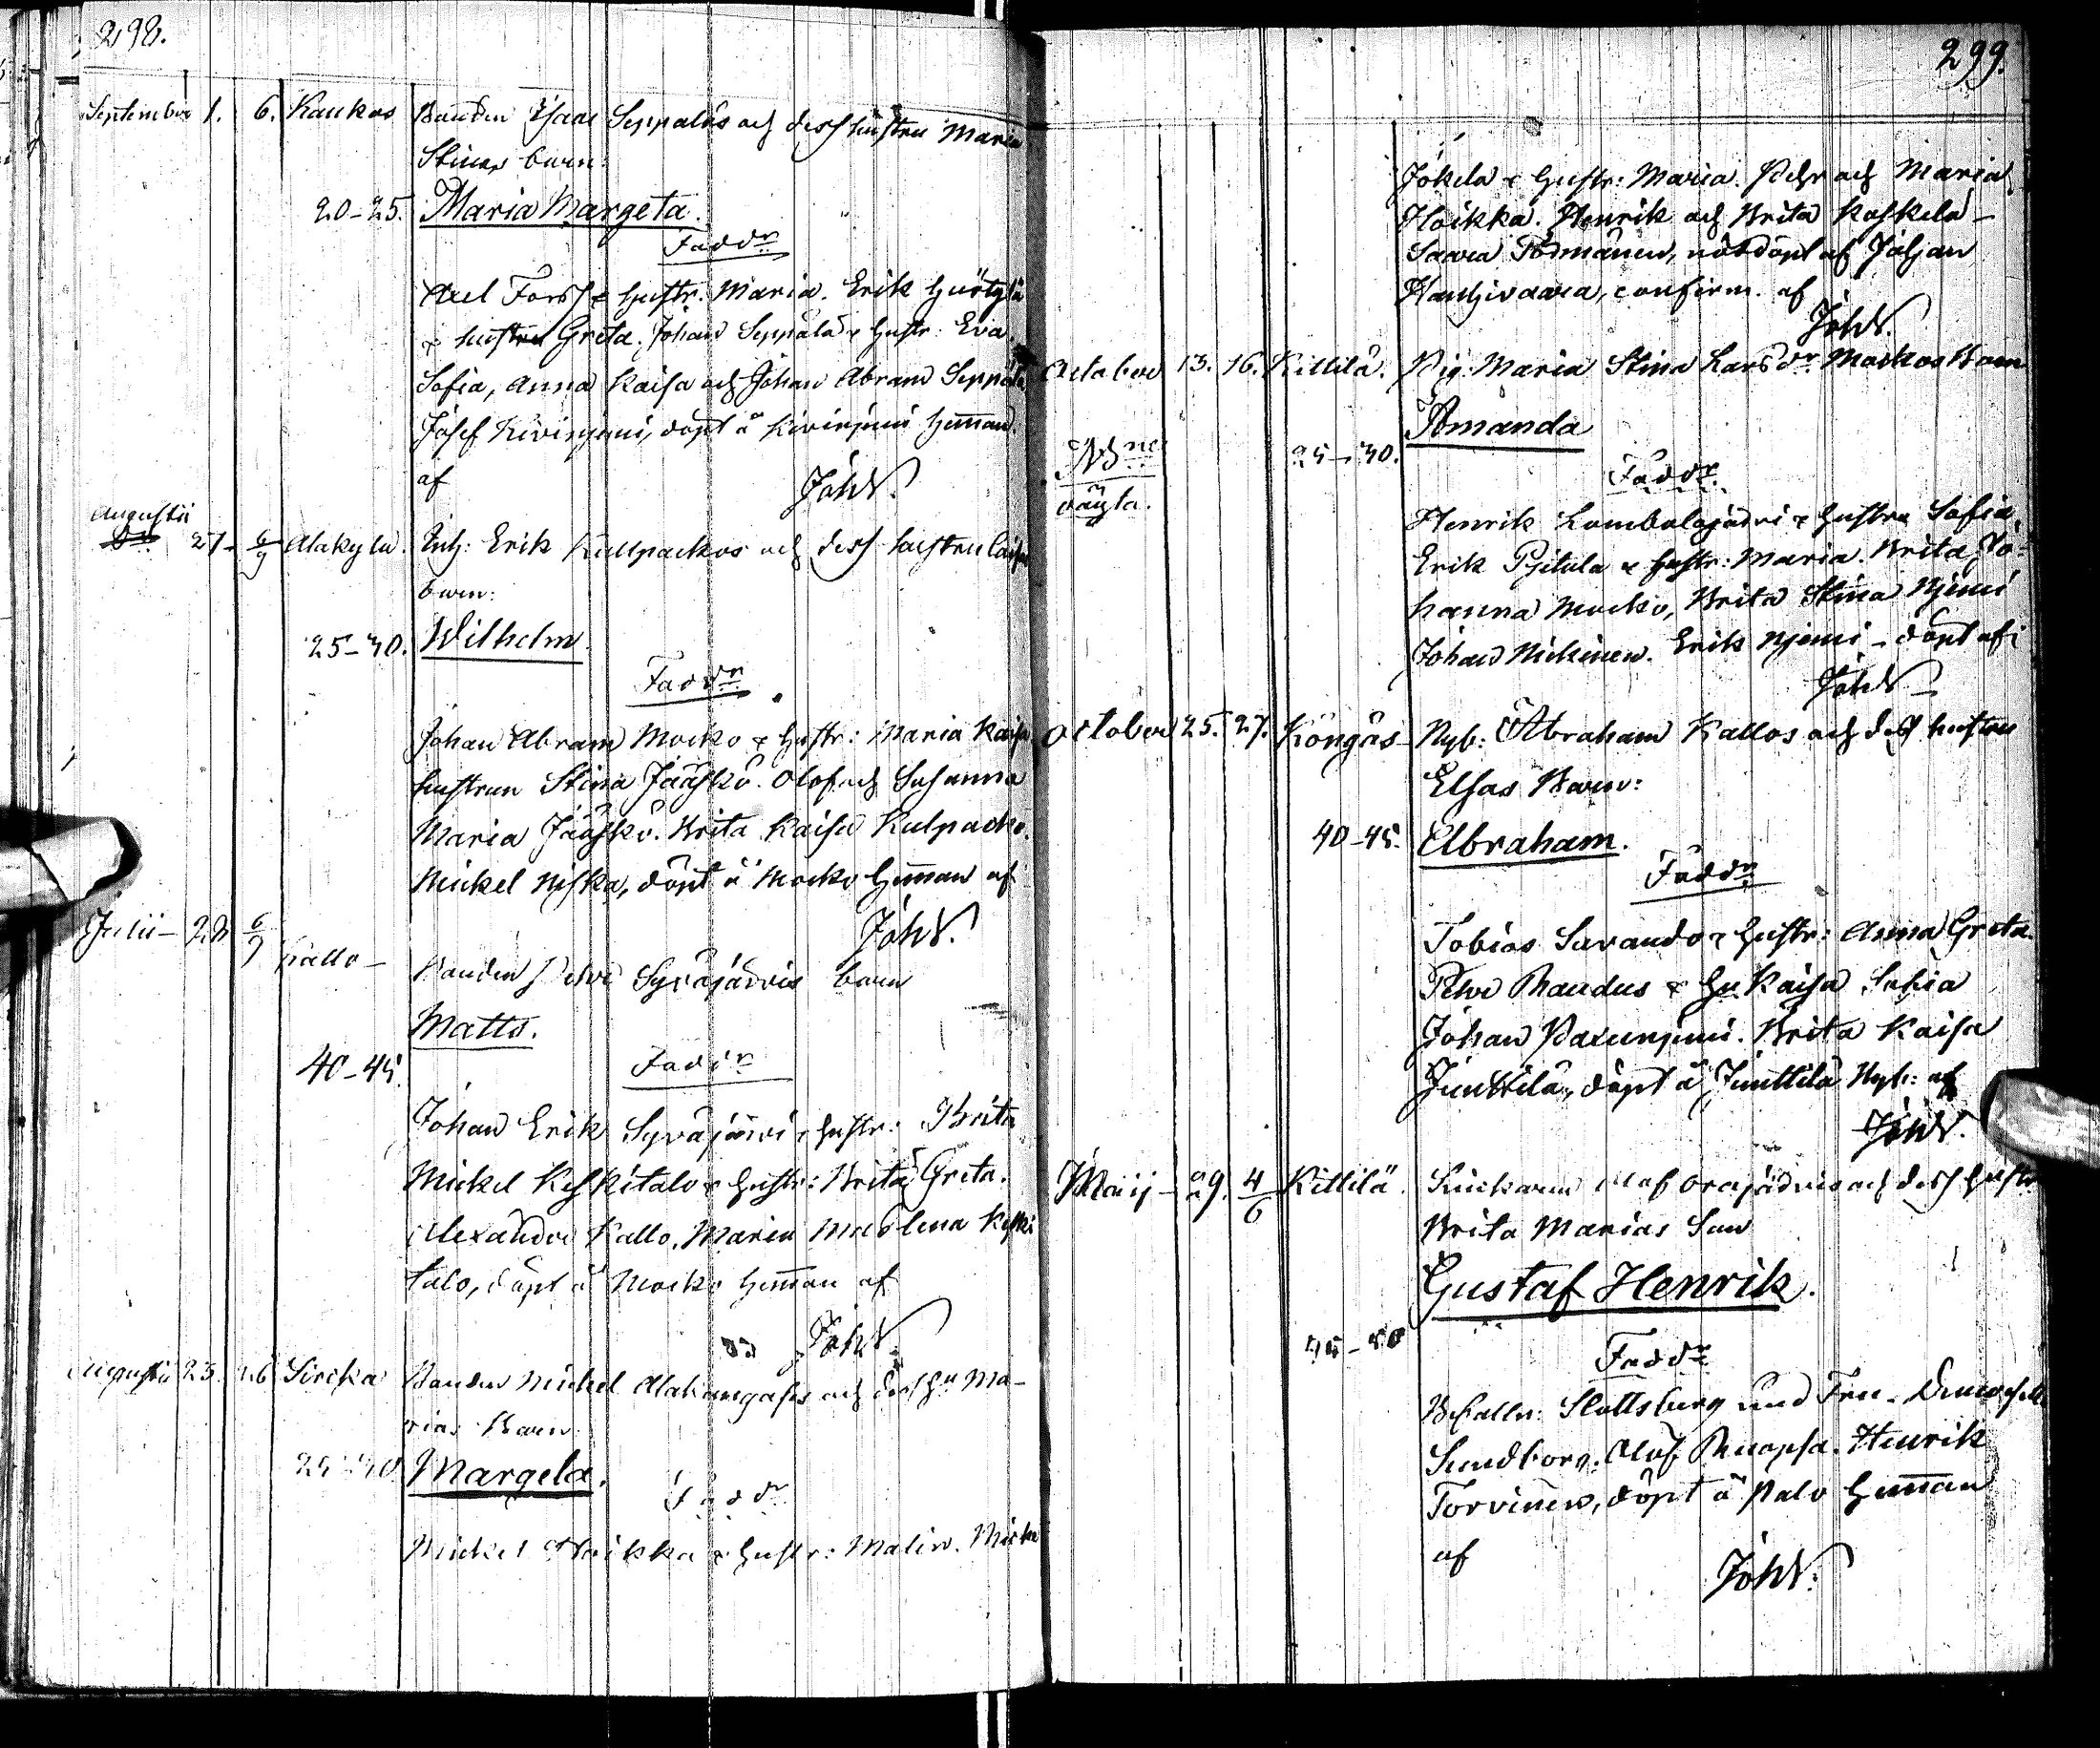 298.
September 1. 6. Kaukos Bonden Isaac Seppaläs och dess hustru Maria
Stinas barn:
20-25. Maria Margeta.
Faddr
Axel Forss & hustr. Maria. Erik
& hustru Greta. Johan Seppälä & hustr: Eva
Sofia, Anna Kaisa och Johan Abram Seppälä
Josef Kiviniemi, döpt å Kiviniemi hemman
af JohW.
Augustii
27 6/9 Alakylä. Inh: Erik Kulpackos och dess hustru Caisas
barn:
25-30. Wilhelm.
Faddr
Johan Abram Mocko & hustr: Maria Kaisa
hustrun Stina Jääskö. Olof och Susanna
Maria Jääskö. Brita Kaisa Kulpacko.
Mickel Niska, döpt å Mocko hemman af
JohW.
Julii 28 6/9 Kallo Bonden Petter Syväjärvis barn
Matts.
40-45. Faddr
Johan Erik Syväjärvi & hustr: Brita
Mickel Keskitalo & hustr: Brita Greta.
Alexander Kallo. Maria Madlena Keski
talo, döpt å Mocko hemman af
JohW.
Augustii 23. 26 Sircka Bonden Mickel Alakangasses och dess hu Ma-
rias Barn
25-30 Margeta.
Faddr
Mickel Hoikka & hustr: Malin. Mickel
299.
Jokela & hustr: Maria. Pehr och Maria
Hoikka. Henrik och Brita Koskela
Saara, nöddöpt af Johan
Hanhivaara, confirm. af
JohW.
October 13. 16. Kittilä. Pig: Maria Stina Larsdr Mockos Barn
Amanda
oägta. 25-30.
Faddr.
Henrik Lombolojärvi & hustru Sofia,
Erik Piitula & hustr: Maria. Brita Jo-
hanna Mocko, Brita Stina Njemi
Johan Nickinen. Erik Njemi - döpt af
JohW
October 25. 27. Köngäs Nyb: Abraham Kallos och dess hustrus
Elsas Barn:
40-45. Abraham.
Faddr
Tobias Sarando & hustr: Anna Greta.
Petter Raudus & hu Kaisa Sofia
Johan. Brita Kaisa
Junttila, döpt å Junttila Nyb: af
JohW.
Maij 29. 4/6 Kittilä. Olof Orajärvis och dess hustr
Brita Marias Son
Gustaf Henrik.
45-50
Faddr
Befalln: Slottsberg und Fru.
Sundborg. Olof Ruopsa. Henrik
Torvinen, döpt å Palo hemman
af
JohW.